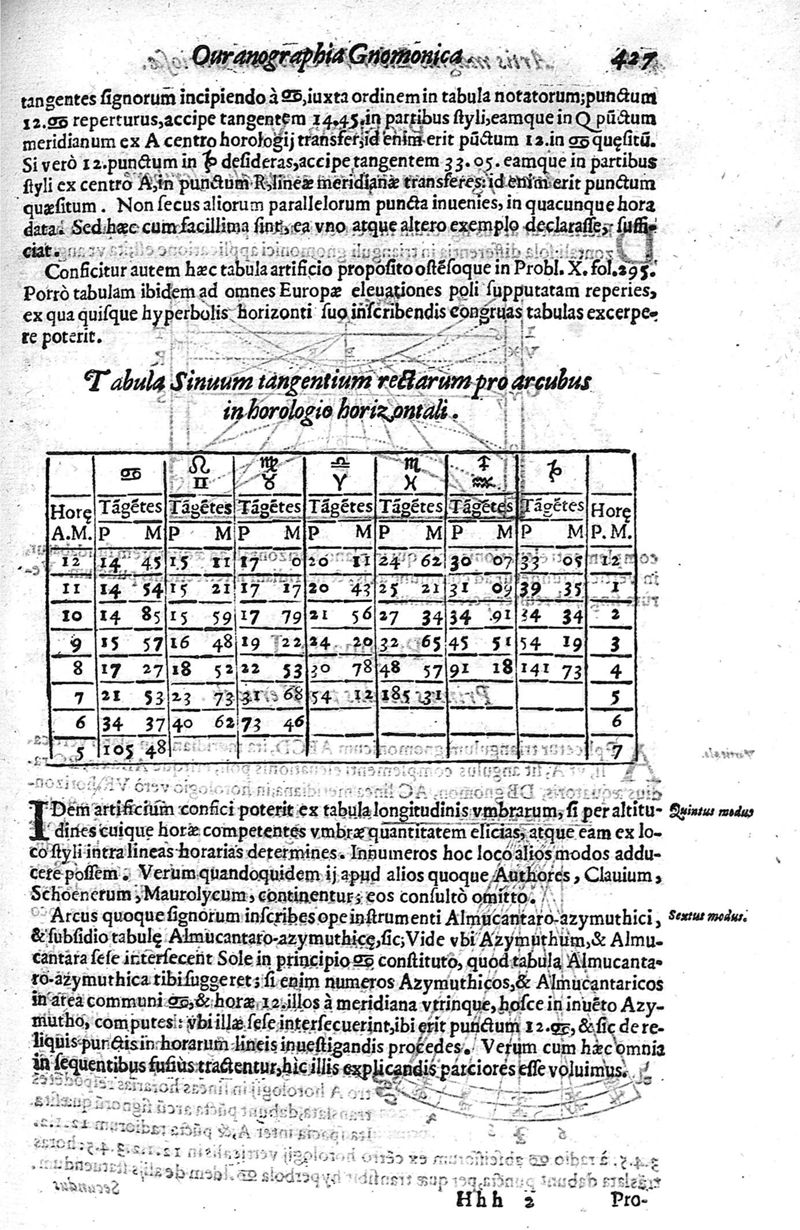 Ouranographia Gnomonica. 427
tangentes signorum incipiendo à ♋, iuxta ordinem in tabula notatorum; punctum
12. ♋ reperturus, accipe tangentem 14. 45. in partibus styli, eamque in Q pūctum
meridianum ex A centro horologij transfer, id enim erit pūctum 12. in ♋ quęsitū.
Si verò 12. punctum in ♑ desideras, accipe tangentem 33. 05. eamque in partibus
styli ex centro A, in punctum R, lineæ meridianæ transferes: id enim erit punctum
quæsitum. Non secus aliorum parallelorum puncta inuenies, in quacunque hora
data. Sed hæc cum facillima sint, ea vno atque altero exemplo declarasse, suffi-
ciat.
Conficitur autem hæc tabula artificio proposito ostēsoque in Probl. X. fol. 295.
Porrò tabulam ibidem ad omnes Europæ eleuationes poli supputatam reperies,
ex qua quisque hyperbolis horizonti suo inscribendis congruas tabulas excerpe-
re poterit.
Tabula Sinuum tangentium rectarum pro arcubus
in horologio horizontali.
♋ ♌ ♍ ♎ ♏ ♐ ♑
♊ ♉ ♈ ♓ ♒
Horę Tāgētes Tāgētes Tāgētes Tāgētes Tāgētes Tāgētes Tāgētes Horę
A.M. P M P M P M P M P M P M P M P. M.
12 14 45 15 11 17 0 20 11 24 62 30 07 33 05 12
11 14 54 15 21 17 17 20 43 25 21 31 09 39 35 1
10 14 85 15 59 17 79 21 56 27 34 34 91 34 34 2
9 15 57 16 48 19 22 24 20 32 65 45 51 54 19 3
8 17 27 18 52 22 53 30 78 48 57 91 18 141 73 4
7 21 53 23 73 31 68 54 12 185 31 5
6 34 37 40 62 73 46 6
5 105 48 7
IDem artificium confici poterit ex tabula longitudinis vmbrarum, si per altitu- Quintus modus
dines cuique horæ competentes vmbræ quantitatem elicias, atque eam ex lo-
co styli intra lineas horarias determines. Innumeros hoc loco alios modos addu-
cere possem. Verum quandoquidem ij apud alios quoque Authores, Clauium,
Schoenerum, Maurolycum, continentur; eos consultò omitto.
Arcus quoque signorum inscribes ope instrumenti Almucantaro-azymuthici, Sextus modus.
& subsidio tabulę Almucantaro-azymuthicę, sic; Vide vbi Azymuthum, & Almu-
cantara sese intersecent Sole in principio ♋ constituto, quod tabula Almucanta-
ro-azymuthica tibi suggeret; si enim numeros Azymuthicos, & Almucantaricos
in area communi ♋, & horæ 12. illos à meridiana vtrinque, hosce in inuēto Azy-
mutho, computes: vbi illæ sese intersecuerint, ibi erit punctum 12. ♋, & sic de re-
liquis punctis in horarum lineis inuestigandis procedes. Verum cum hæc omnia
in sequentibus fusiùs tractentur, hic illis explicandis parciores esse voluimus.
Hhh 2 Pro-